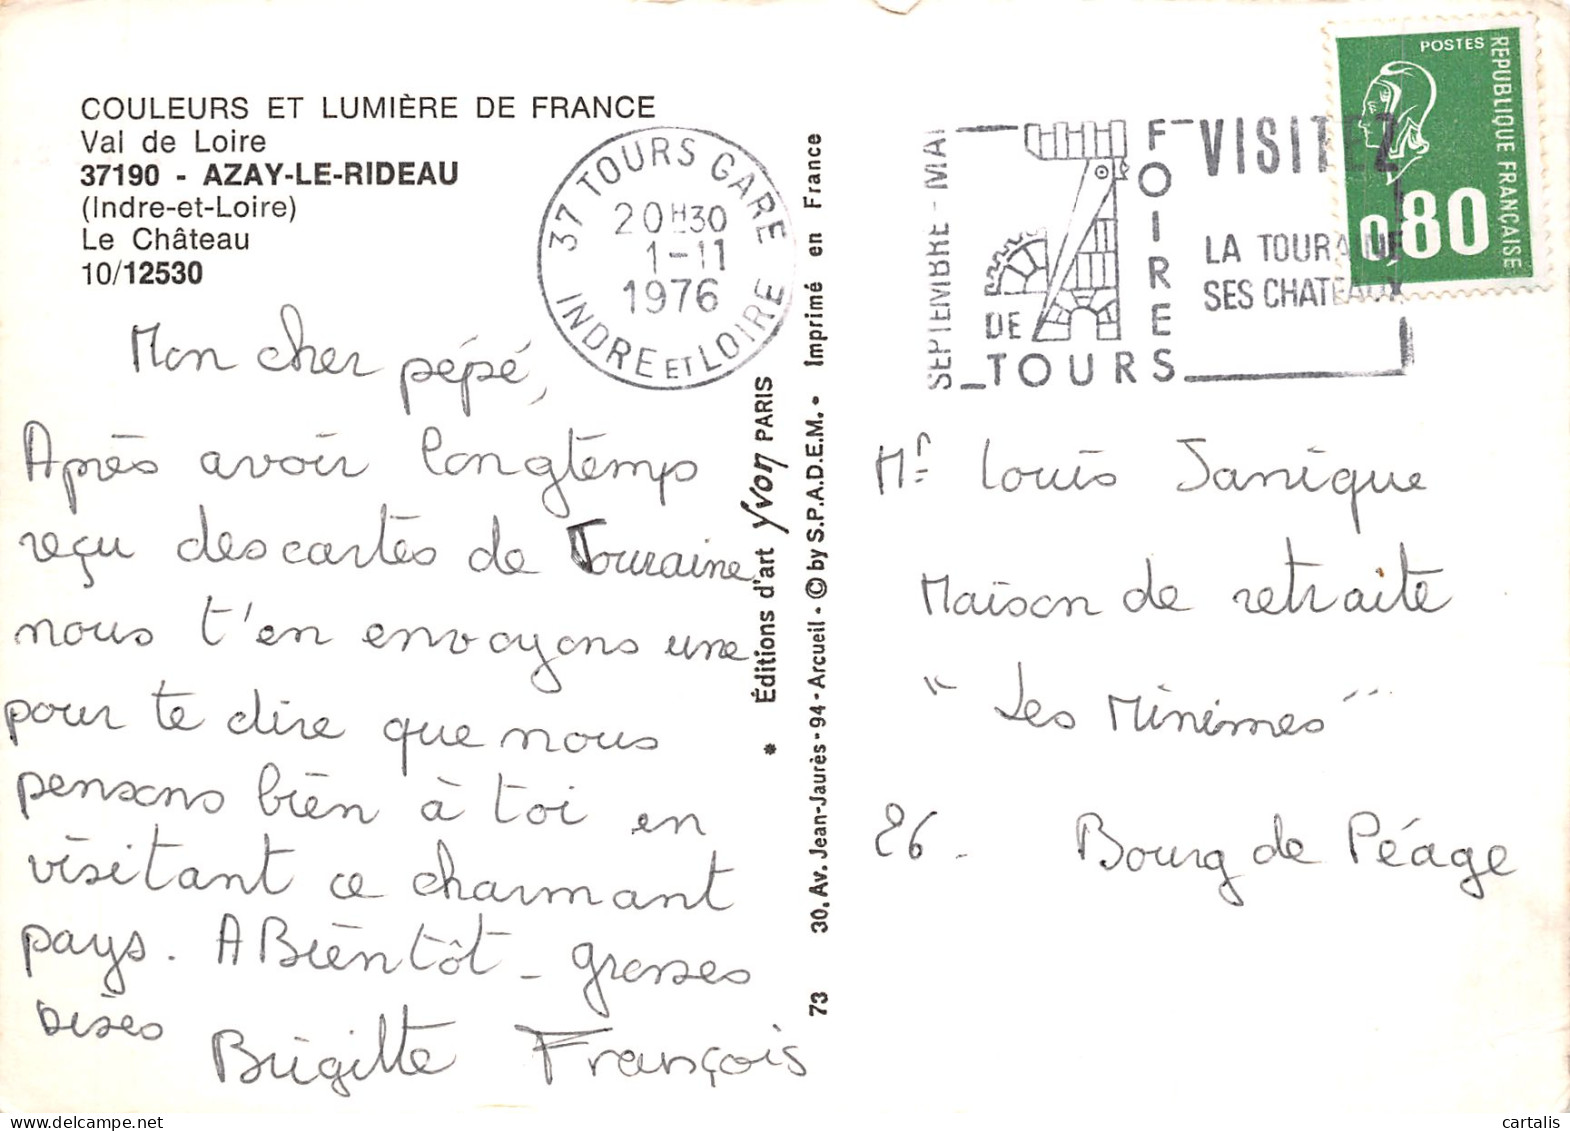 COULEURS ET LUMIÈRE DE FRANCE
Val de Loire
37190 - AZAY-LE-RIDEAU
(Indre-et-Loire)
Le Château
10/12530
37 TOURS GARE
20H30
1-11
1976
INDRE ET LOIRE
SEPTEMBRE - MAI
FOIRES
DE
TOURS
VISITEZ
LA TOURAINE
SES CHATEAUX
POSTES
REPUBLIQUE FRANÇAISE
0,80
Mon cher pépé,
Après avoir longtemps
reçu des cartes de Touraine
nous t'en envoyons une
pour te dire que nous
pensons bien à toi en
visitant ce charmant
pays. A Bientôt - grosses
bises
Brigitte François
* Éditions d'art Yvon PARIS
73 30, Av. Jean-Jaurès - 94 - Arcueil • © by S.P.A.D.E.M. • Imprimé en France
Mr Louis Janique
Maison de retraite
"Les Minimes"
26 - Bourg de Péage
cartalis